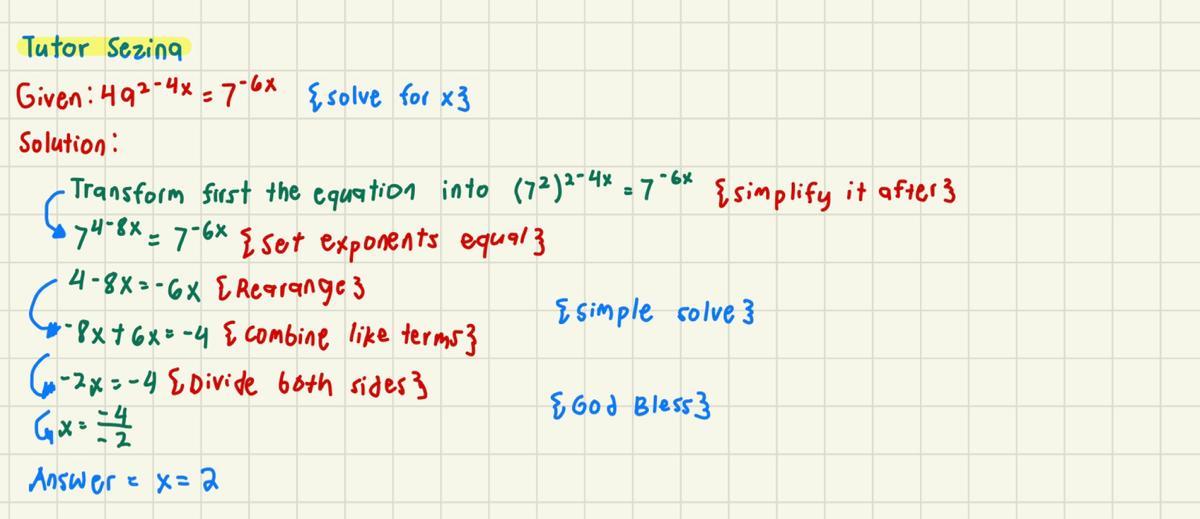 Tutor Sezina
Given: 49²⁻⁴ˣ = 7⁻⁶ˣ {solve for x}
Solution:
Transform first the equation into (7²)²⁻⁴ˣ = 7⁻⁶ˣ {simplify it after}
7⁴⁻⁸ˣ = 7⁻⁶ˣ {set exponents equal}
4-8x=-6x {Rearange}
{simple solve}
-8x+6x=-4 {combine like terms}
-2x=-4 {Divide both sides}
{God Bless}
x= -4/-2
Answer = x=2